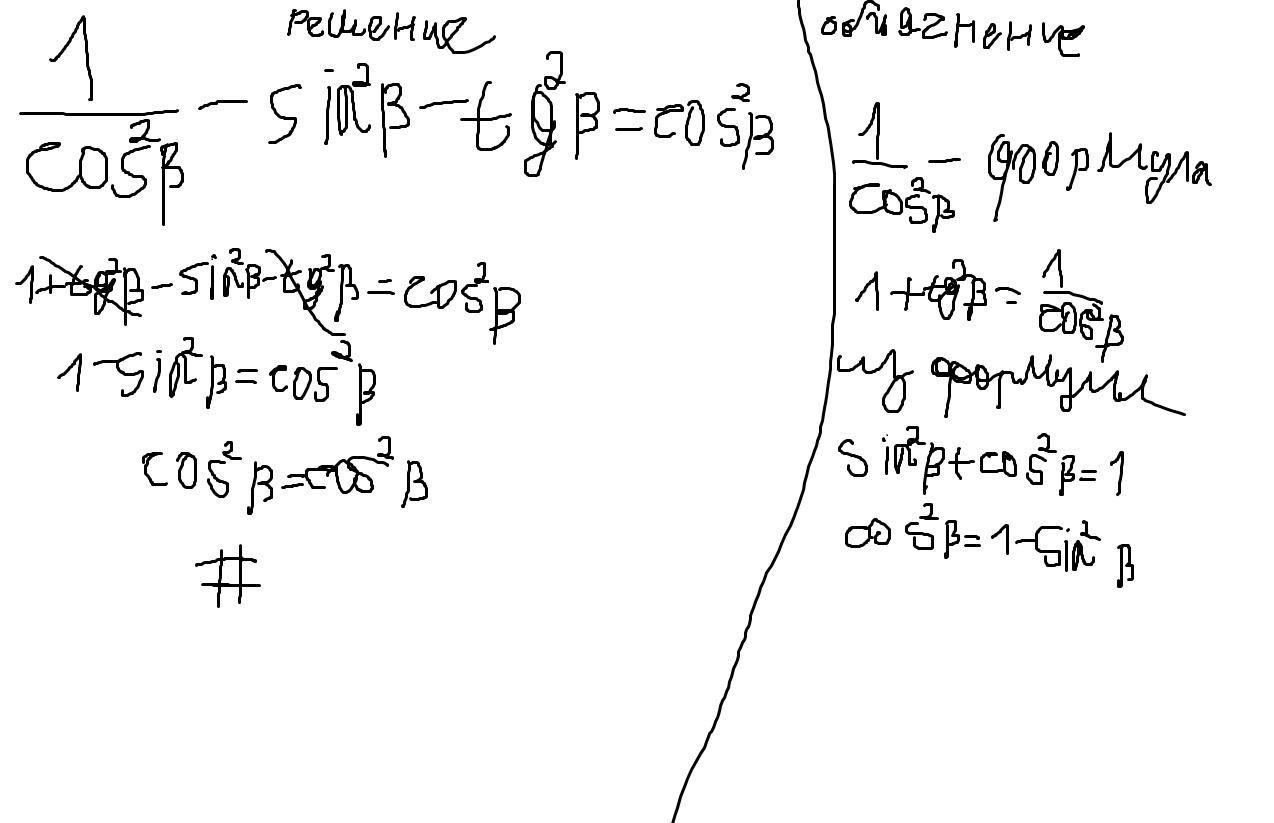 решение
1/cos²β - sin²β - tg²β = cos²β
1+tg²β - sin²β - tg²β = cos²β
1 - sin²β = cos²β
cos²β = cos²β
#
1/cos²β - формула
1 + tg²β = 1/cos²β
из формулы
sin²β + cos²β = 1
cos²β = 1 - sin²β